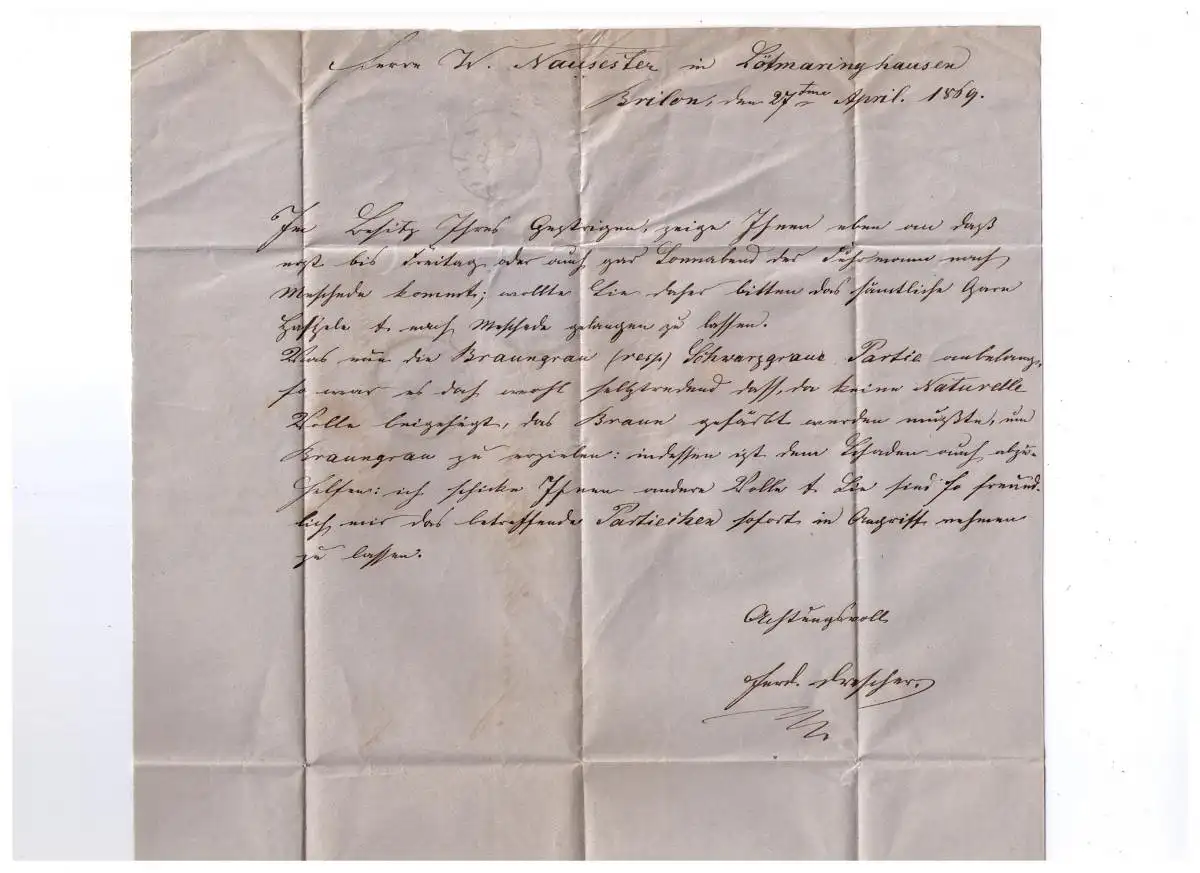 Herrn W. Nausester in Lötmaringhausen
Brilon, den 27tme April. 1869.
Im Besitz Ihres Gestrigen, zeige Ihnen eben an daß
erst bis Freitag oder auch gar Sonnabend der Fuhrmann nach
Meschede kommt; wollte Sie daher bitten das sämtliche Garn
Haspele & nach Meschede gelangen zu lassen.
Was nun die Braungrau (resp.) Schwarzgraue Partie anbelangt,
so war es doch wohl selbstredend dass, da keine Naturelle
Wolle beigefügt, das Braun gefärbt werden mußte, um
Braungrau zu erzielen: indessen ist dem Schaden auch abzu-
helfen: ich schicke Ihnen andere Wolle & Sie sind so freund-
lich mir das betreffende Partiechen sofort in Angriff nehmen
zu lassen.
Achtungsvoll
Ferd. Drescher.